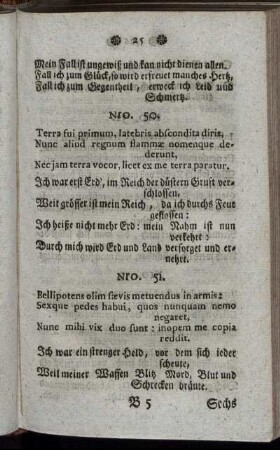 25
Mein Fall ist ungewiß und kan nicht dienen allen.
Fall ich zum Glück, so wird erfreuet manches Hertz,
Fall ich zum Gegentheil, erweck ich Leid und
Schmertz.
Nro. 50.
Terra fui primum, latebris abscondita diris,
Nunc aliud regnum flammæ nomenque de-
derunt,
Nec jam terra vocor, licet ex me terra paratur.
Ich war erst Erd', im Reich der düstern Gruft ver-
schlossen,
Weit grösser ist mein Reich, da ich durchs Feur
geflossen:
Ich heiße nicht mehr Erd: mein Nahm ist nun
verkehrt:
Durch mich wird Erd und Land versorget und er-
nehrt.
Nro. 51.
Bellipotens olim sævis metuendus in armis:
Sexque pedes habui, quos nunquam nemo
negaret,
Nunc mihi vix duo sunt: inopem me copia
reddit.
Ich war ein strenger Held, vor dem sich jeder
scheute,
Weil meiner Waffen Blitz Mord, Blut und
Schrecken dräute.
B 5 Sechs